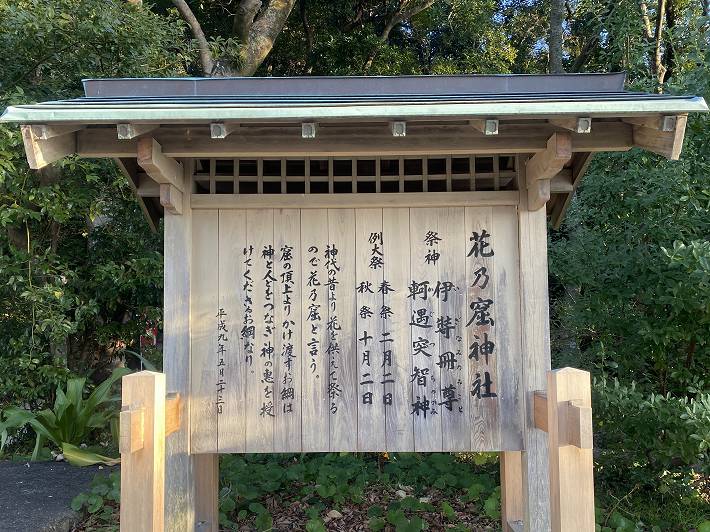 花乃窟神社
祭神
伊弉冊尊
いざなみのみこと
軻遇突智神
例大祭
春祭 二月二日
秋祭 十月二日
神代の昔より花を供えて祭る
ので花乃窟と言う。
窟の頂上よりかけ渡すお綱は
神と人とをつなぎ神の恵を授
けてくださるお綱なり
平成九年五月二十三日